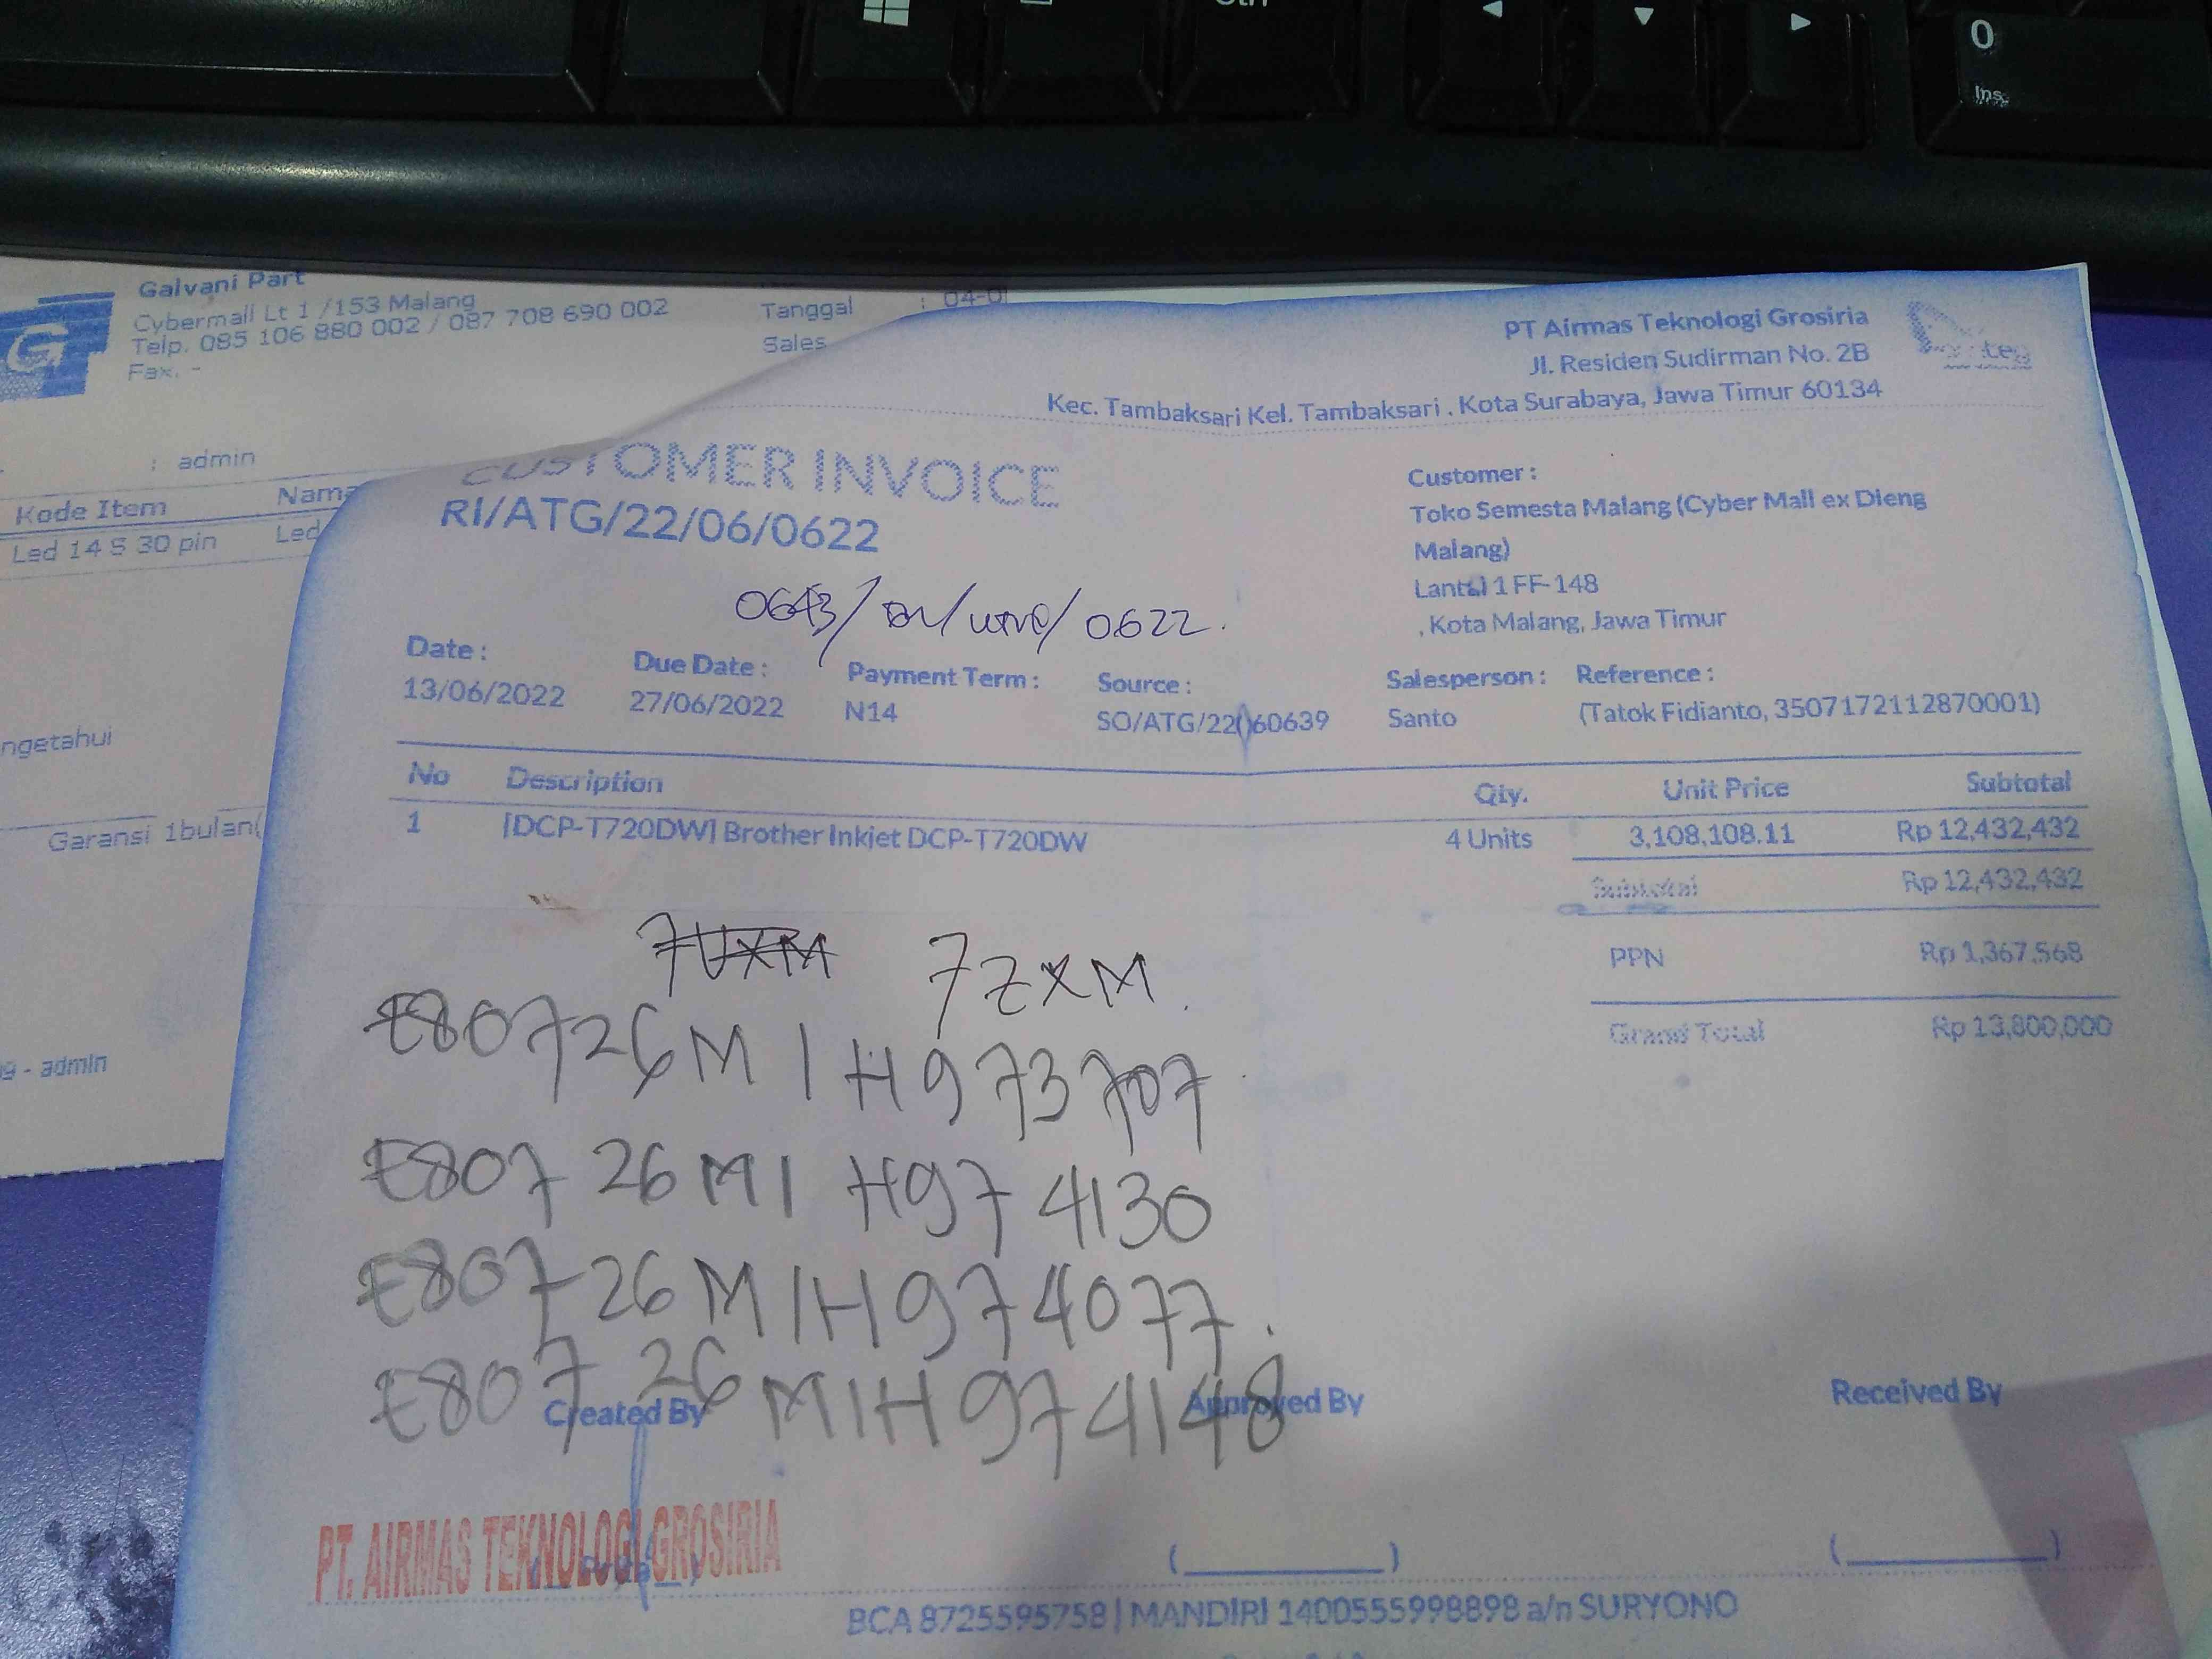 Ctrl
0
Ins
Galvani Part
Cybermall Lt 1 /153 Malang
Telp. 085 106 880 002 / 087 708 690 002
Fax. -
Tanggal : 04-0
Sales
: admin
Kode Item Nama
Led 14 S 30 pin Led
ngetahui
Garansi 1bulan(
9 - admin
PT Airmas Teknologi Grosiria
Jl. Residen Sudirman No. 2B
Kec. Tambaksari Kel. Tambaksari . Kota Surabaya, Jawa Timur 60134
CUSTOMER INVOICE
RI/ATG/22/06/0622
0622.
Customer :
Toko Semesta Malang (Cyber Mall ex Dieng
Malang)
Lantai 1 FF-148
, Kota Malang, Jawa Timur
Date : Due Date : Payment Term : Source : Salesperson : Reference :
13/06/2022 27/06/2022 N14 SO/ATG/22060639 Santo (Tatok Fidianto, 3507172112870001)
No Description Qty. Unit Price Subtotal
1 [DCP-T720DW] Brother Inkjet DCP-T720DW 4 Units 3,108,108.11 Rp 12,432,432
Subtotal Rp 12,432,432
PPN Rp 1,367,568
Grand Total Rp 13,800,000
7UXM 7ZXM.
E80726M1H973707
E80726M1H974130
E80726M1H974077.
E80726M1H974148
Created By Approved By Received By
PT. AIRMAS TEKNOLOGI GROSIRIA
(__________) (__________)
BCA 8725595758 | MANDIRI 1400555998898 a/n SURYONO